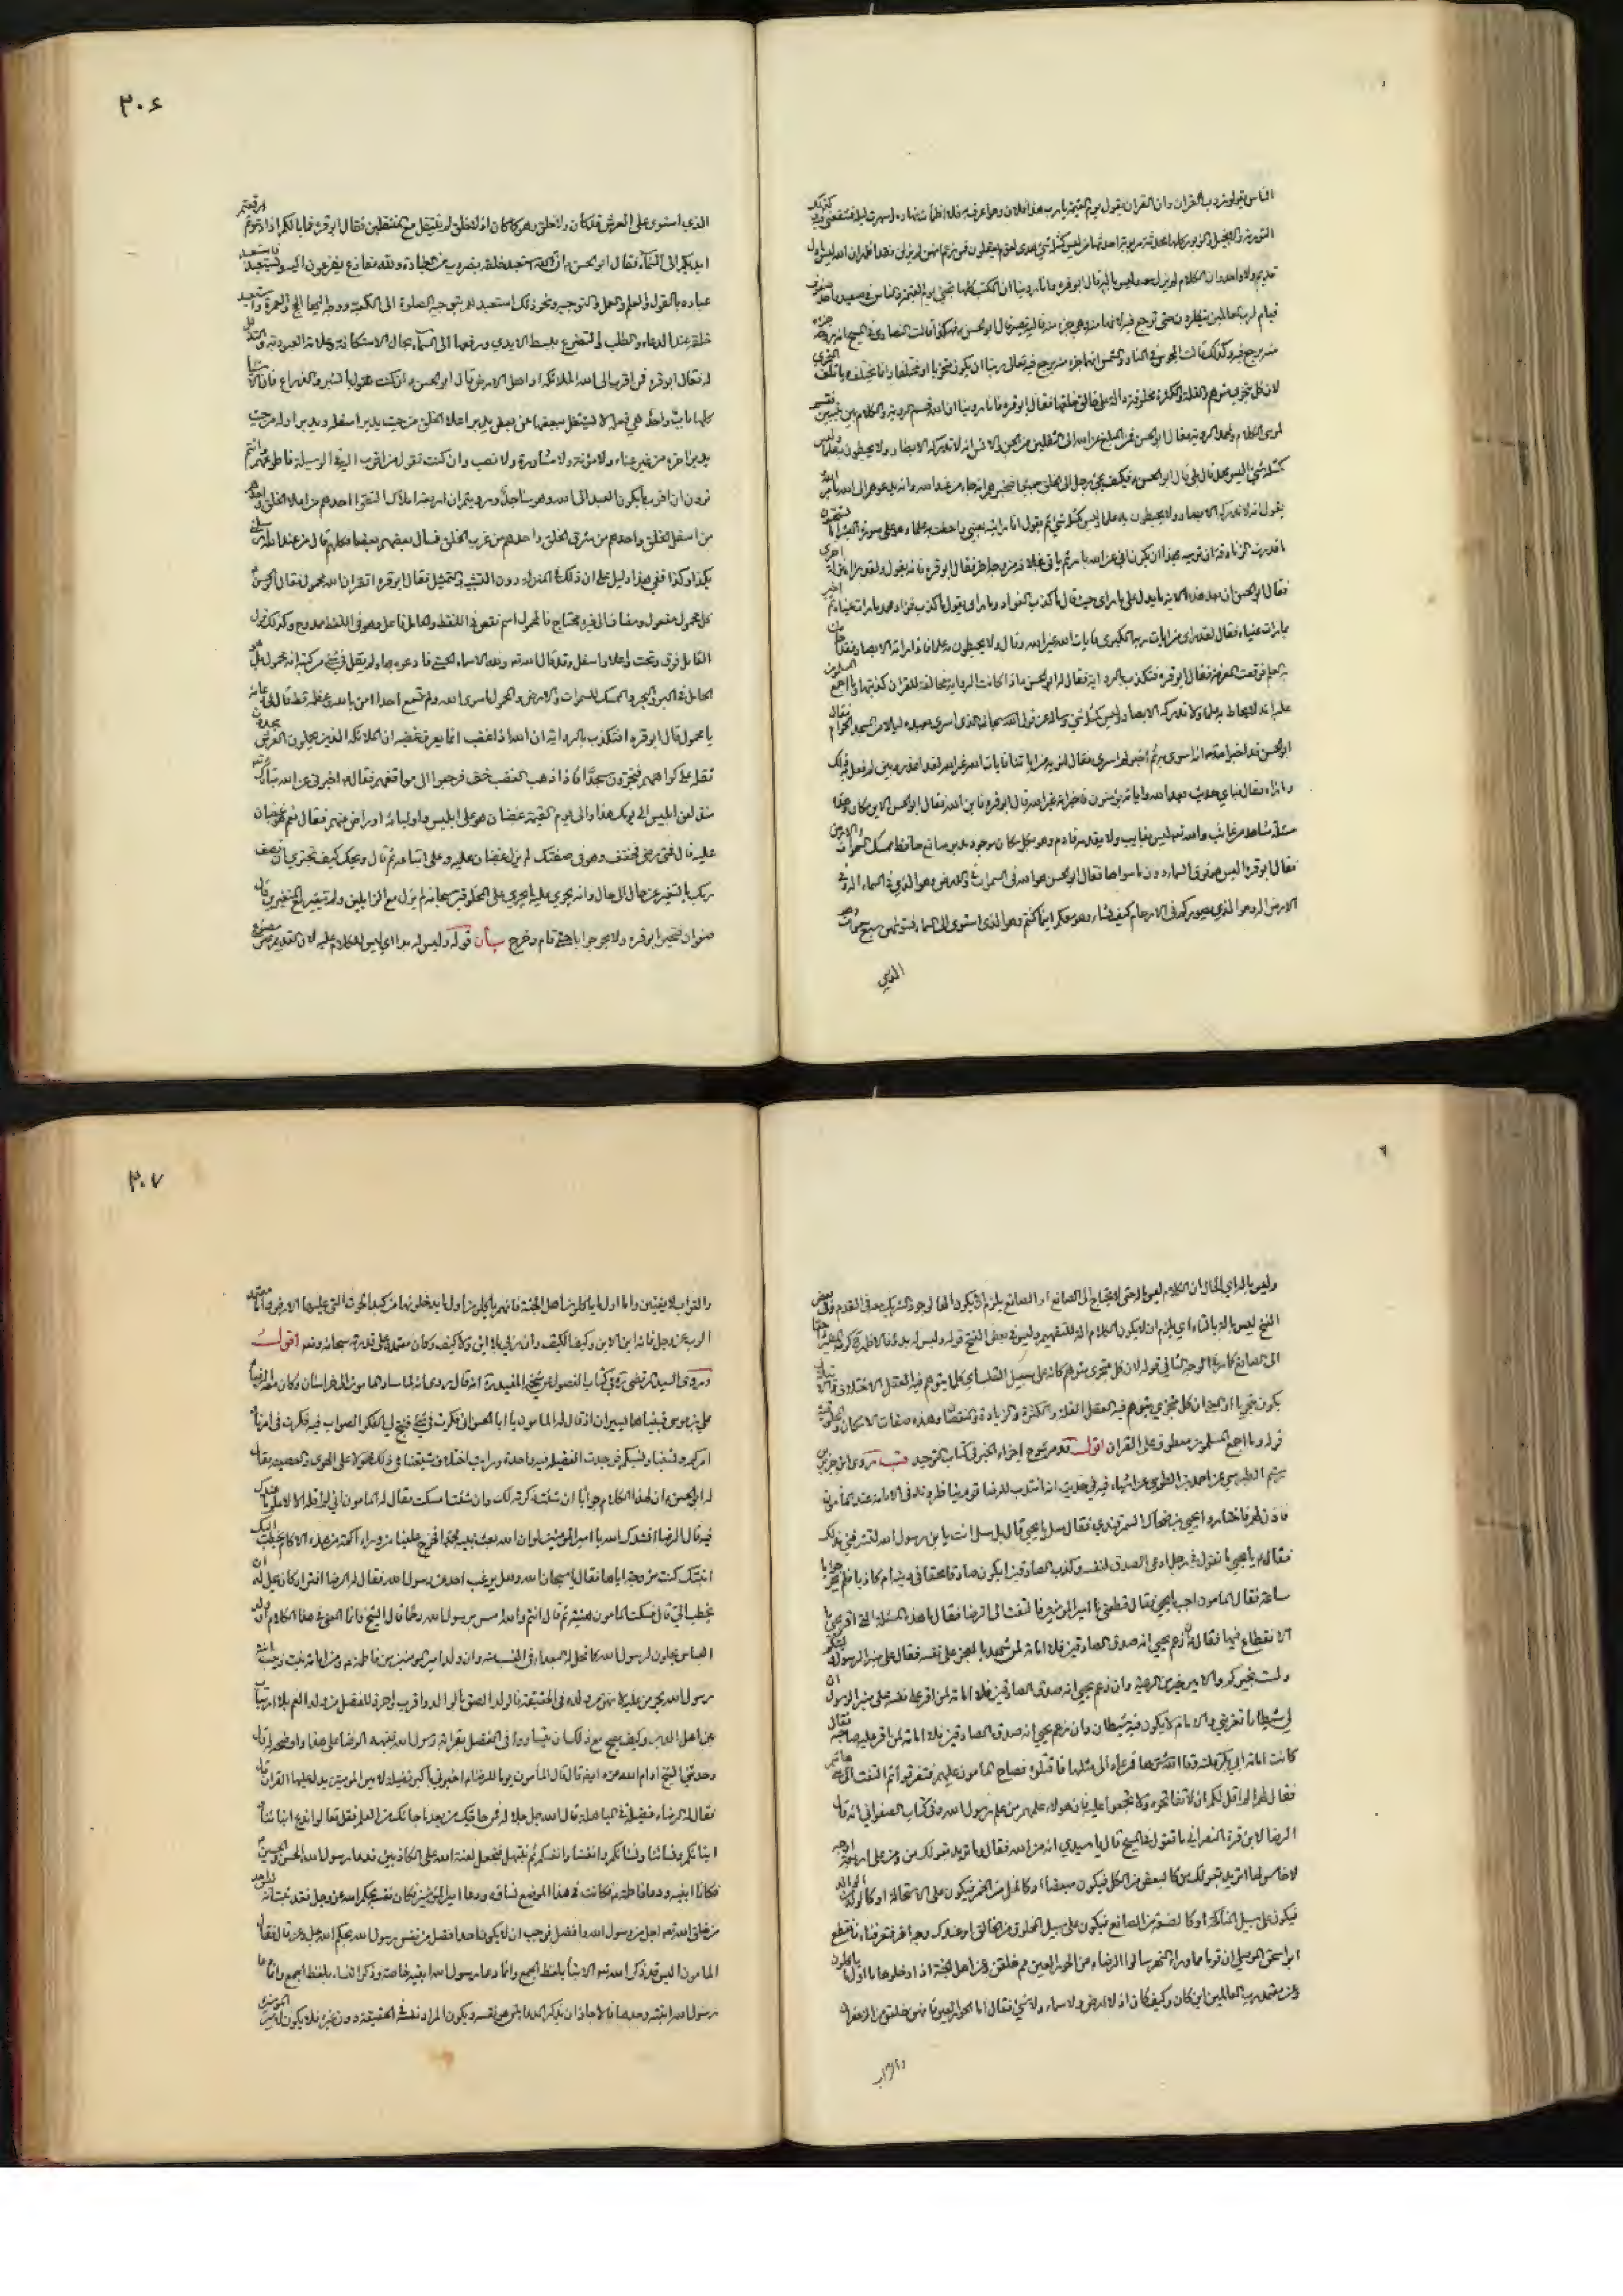 الناس يقولون رب القران وان القران يقول يوم القيمة يا رب هذا فلان وهو اعرف به قد اظمأت نهاره واسهرت ليله فشفعني فيه وكذلك
التورية والانجيل والزبور كلها محدثة مربوبة احدثها من ليس كمثله شيء هدى لقوم يعقلون فمن زعم انهن لم يزلن فقد اظهر ان الله ليس باول
قديم ولا واحد وان الكلام لم يزل معه وليس له بدء وليس باله قال ابو قرة فانا روينا ان الكتب كلها تجيء يوم القيمة والناس في صعيد واحد صفوف
قيام لرب العالمين ينظرون حتى ترجع فيه لانها منه وهي جزء منه فاليه تصير قال ابو الحسن فهكذا قالت النصارى في المسيح انه روحه جزء
منه ويرجع فيه وكذلك قالت المجوس في النار والشمس انهما جزء منه يرجع فيه تعالى ربنا ان يكون متجزيا او مختلفا وانما يختلف ويأتلف المتجزي
لان كل متجزي متوهم والقلة والكثرة مخلوقة دالة على خالق خلقها فقال ابو قرة فانا روينا ان الله قسم الروية والكلام بين نبيين فقسم
لموسى الكلام ولمحمد الروية فقال ابو الحسن فمن المبلغ عن الله الى الثقلين من الجن والانس انه لا تدركه الابصار ولا يحيطون به علما وليس
كمثله شيء اليس محمد قال بلى قال ابو الحسن فكيف يجيء رجل الى الخلق جميعا فيخبرهم انه جاء من عند الله وانه يدعوهم الى الله بامر الله
يقول انه لا تدركه الابصار ولا يحيطون به علما وليس كمثله شيء ثم يقول انا رايته بعيني واحطت به علما وهو على صورة البشر اما تستحيون
ما قدرت الزنادقة ان ترميه بهذا ان يكون اتى عن الله بامر ثم ياتي بخلافه من وجه اخر فقال ابو قرة فانه يقول ولقد راه نزلة اخرى
فقال ابو الحسن ان بعد هذه الاية ما يدل على ما راى حيث قال ما كذب الفؤاد ما راى يقول ما كذب فؤاد محمد ما رات عيناه ثم اخبر
بما رات عيناه فقال لقد راى من ايات ربه الكبرى فايات الله غير الله وقال ولا يحيطون به علما فاذا راته الابصار فقد احاطت
به العلم ووقعت المعرفة فقال ابو قرة فتكذب بالرواية فقال ابو الحسن اذا كانت الرواية مخالفة للقران كذبتها وما اجمع المسلمون
عليه انه لا يحاط به علما ولا تدركه الابصار وليس كمثله شيء وساله عن قول الله سبحان الذي اسرى بعبده ليلا من المسجد الحرام فقال
ابو الحسن قد اخبر الله تعالى انه اسرى به ثم اخبر لم اسرى به فقال لنريه من اياتنا فايات الله غير الله فقد اعذر وبين لم فعل به ذلك
وما راه وقال فباي حديث بعد الله واياته يؤمنون فاخبر انه غير الله قال ابو قرة فاين الله فقال ابو الحسن الاين مكان وهذه
مسئلة شاهد من غائب والله تعالى ليس بغائب ولا يقدمه قادم وهو بكل مكان موجود مدبر صانع حافظ ممسك السموات والارض
فقال ابو قرة اليس هو فوق السماء دون ما سواها فقال ابو الحسن هو الله في السموات وفي الارض وهو الذي في السماء اله وفي
الارض اله وهو الذي يصوركم في الارحام كيف يشاء وهو معكم اينما كنتم وهو الذي استوى الى السماء فسويهن سبع سموات وهو
الذي
٣٠۶
الذي استوى على العرش قد كان ولا خلق وهو كما كان اذ لا خلق لم ينتقل مع المنتقلين فقال ابو قرة فما بالكم اذا دعوتم رفعتم
ايديكم الى السماء فقال ابو الحسن ان الله استعبد خلقه بضروب من العبادة ولله مفازع يفزعون اليه ومستعبد فاستعبد
عباده بالقول والعلم والعمل والتوجيه ونحو ذلك استعبدهم بتوجيه الصلوة الى الكعبة ووجه اليها الحج والعمرة واستعبد
خلقه عند الدعاء والطلب والتضرع ببسط الايدي ورفعها الى السماء لحال الاستكانة وعلامة العبودية والتذلل
له فقال ابو قرة فمن اقرب الى الله الملائكة او اهل الارض قال ابو الحسن ان كنت تقول بالشبر والذراع فان الاشياء
كلها باب واحد هي فعله لا يشتغل ببعضها عن بعض يدبر اعلا الخلق من حيث يدبر اسفله ويدبر اوله من حيث
يدبر اخره من غير عناء ولا مؤنة ولا مشاورة ولا نصب وان كنت تقول من اقرب اليه في الوسيلة فاطوعهم له وانتم
تروون ان اقرب ما يكون العبد الى الله وهو ساجد ورويتم ان اربعة املاك التقوا احدهم من اعلا الخلق واحدهم
من اسفل الخلق واحدهم من شرق الخلق واحدهم من غرب الخلق فسال بعضهم بعضا فكلهم قال من عند الله ارسلني
بكذا وكذا ففي هذا دليل على ان ذلك في المنزلة دون التشبيه والتمثيل فقال ابو قرة اتقر ان الله محمول فقال ابو الحسن
كل محمول مفعول ومضاف الى غيره محتاج فالمحمول اسم نقص في اللفظ والحامل فاعل وهو في اللفظ ممدوح وكذلك قول
القائل فوق وتحت واعلا واسفل وقد قال الله تعالى ولله الاسماء الحسنى فادعوه بها ولم يقل في شيء من كتبه انه محمول بل هو
الحامل في البر والبحر والممسك للسموات والارض والمحمول ما سوى الله ولم نسمع احدا امن بالله وعظمه قط قال في دعائه
يا محمول قال ابو قرة افتكذب بالرواية ان الله اذا غضب انما يعرف غضبه ان الملائكة الذين يحملون العرش يجدون
ثقله على كواهلهم فيخرون سجدا فاذا ذهب الغضب خف فرجعوا الى مواقفهم فقال اخبرني عن الله تبارك وتعالى
منذ لعن ابليس الى يومك هذا والى يوم القيمة غضبان هو على ابليس واوليائه او راض عنهم فقال نعم هو غضبان
عليه قال فمتى رضي فخفف وهو في صفتك لم يزل غضبان عليه وعلى اتباعه ثم قال ويحك كيف تجتري ان تصف
ربك بالتغير من حال الى حال وانه يجري عليه ما يجري على المخلوقين سبحانه لم يزل مع الزايلين ولم يتغير مع المتغيرين قال
صفوان فتحير ابو قرة ولم يحر جوابا حتى قام وخرج بيان قوله وليس له بدء اي ليس للكلام علة لان القديم
وليس باله اي والحال ان الكلام ليس باله حتى لا يحتاج الى الصانع او الصانع يلزم ان لا يكون الها لوجود الشريك معه في القدم وفي بعض
النسخ ليس باله بالتاء اي يلزم ان لا يكون الكلام الة للتفهيم وليس في بعض النسخ قوله وليس له بدء
الى الصانع كما مر في الوجه الثاني قوله لان كل متجزي متوهم كانه على سبيل القلب اي كلما يتوهم فيه العقل الاختلاف فانه
يكون متجزيا او المراد ان كل متجزي يتوهم فيه العقل القلة والكثرة والزيادة والنقصان وهذه صفات الامكان والمخلوقية
قوله وما اجمع المسلمون معطوف على القران اقول قد مر شرح اجزاء الخبر في كتاب التوحيد قب روى ابن جرير بن
رستم الطبري عن احمد الطوسي عن اشياخه في حديث انه انتدب للرضا قوم يناظرونه في الامامة عند المأمون
فاذن لهم فاختاروا يحيى بن الضحاك السمرقندي فقال سل يا يحيى قال بل سل انت يا بن رسول الله لتشرفني بذلك
فقال يا يحيى ما تقول في رجل ادعى الصدق لنفسه وكذب الصادقين ايكون صادقا محقا في دينه ام كاذبا فلم يحر جوابا
ساعة فقال المامون اجبه يا يحيى فقال قطعني يا امير المؤمنين فالتفت الى الرضا فقال ما هذه المسئلة التي اقر يحيى
الانقطاع فيها فقال ان زعم يحيى انه صدق الصادقين فلا امامة لمن شهد بالعجز على نفسه فقال على منبر الرسول
وليتكم ولست بخيركم والامير خير من الرعية وان زعم يحيى انه صدق الصادقين فلا امامة لمن اقر على نفسه على منبر الرسول ان
لي شيطانا يعتريني والامام لا يكون فيه شيطان وان زعم يحيى انه صدق الصادقين فلا امامة لمن اقر عليه صاحبه فقال
كانت امامة ابي بكر فلتة وقى الله شرها فمن عاد الى مثلها فاقتلوه فصاح المامون عليهم فتفرقوا ثم التفت الى بني هاشم
فقال لهم الم اقل لكم ان لا تفاتحوه ولا تجمعوا عليه فان هؤلاء علمهم من علم رسول الله وفي كتاب الصفواني انه قال
الرضا لابن قرة النصراني ما تقول في المسيح قال يا سيدي انه من الله فقال ما تريد بقولك من ومن على اربعة اوجه
لا خامس لها اتريد بقولك من كالبعض من الكل فيكون مبعضا او كالخل من الخمر فيكون على سبيل الاستحالة او كالولد من الوالد
فيكون على سبيل المناكحة او كالصنعة من الصانع فيكون على سبيل المخلوق من الخالق او عندك وجه اخر فتعرفناه فانقطع
ابو اسحق الموصلي ان قوما مما وراء النهر سالوا الرضا عن الحور العين مم خلقن وعن اهل الجنة اذا دخلوها ما اول ما ياكلون
وعن معتمد رب العالمين اين كان وكيف كان اذ لا ارض ولا سماء ولا شيء فقال اما الحور العين فانهن خلقن من الزعفران
والتراب
٣٠٧
والتراب لا يفنين واما اول ما ياكلون اهل الجنة فانهم ياكلون اول ما يدخلونها من كبد الحوت التي عليها الارض واما معتمد
الرب عز وجل فانه اين الاين وكيف الكيف وان ربي بلا اين ولا كيف وكان معتمده على قدرته سبحانه وتعالى اقول
وروى السيد المرتضى ره في كتاب الفصول عن شيخه المفيد ره انه قال روى انه لما سار المامون الى خراسان وكان معه الرضا
علي بن موسى فبينا هما يسيران اذ قال له المامون يا ابا الحسن اني فكرت في شيء فنتج لي الفكر الصواب فيه فكرت في امرنا
وامركم ونسبنا ونسبكم فوجدت الفضيلة فيه واحدة ورايت اختلاف شيعتنا في ذلك محمولا على الهوى والعصبية فقال
له ابو الحسن ان لهذا الكلام جوابا ان شئت ذكرته لك وان شئت امسكت فقال له المامون اني لم اقله الا لاعلم ما عندك
فيه قال الرضا انشدك الله يا امير المؤمنين لو ان الله بعث نبيه محمدا فخرج علينا من وراء اكمة من هذه الاكام يخطب اليك
ابنتك كنت مزوجه اياها فقال يا سبحان الله وهل يرغب احد عن رسول الله فقال له الرضا افتراه كان يحل له ان
يخطب الي قال فسكت المامون هنيئة ثم قال انتم والله امس برسول الله رحما قال الشيخ وانما المعنى في هذا الكلام ان ولد
العباس يحلون لرسول الله كما تحل له البعداء في النسب منه وان ولد امير المؤمنين من فاطمة ومن امامة بنت زينب ابنة
رسول الله يحرمن عليه لانهن من ولده في الحقيقة فالولد الصق بالوالد واقرب واحرز للفضل من ولد العم بلا ارتياب
بين اهل الدين وكيف يصح مع ذلك ان يتساووا في الفضل بقرابة رسول الله فنبهه الرضا على هذا واوضحه له قال
وحدثني الشيخ ادام الله عزه ايضا قال قال المأمون يوما للرضا اخبرني باكبر فضيلة لامير المؤمنين يدل عليها القران قال
فقال له الرضا فضيلة في المباهلة قال الله جل جلاله فمن حاجك فيه من بعد ما جائك من العلم فقل تعالوا ندع ابنائنا
وابنائكم ونسائنا ونسائكم وانفسنا وانفسكم ثم نبتهل فنجعل لعنة الله على الكاذبين فدعا رسول الله الحسن والحسين
فكانا ابنيه ودعا فاطمة فكانت في هذا الموضع نسائه ودعا امير المؤمنين فكان نفسه بحكم الله عز وجل فقد ثبت انه ليس احد
من خلق الله تعالى اجل من رسول الله وافضل فوجب ان لا يكون احد افضل من نفس رسول الله بحكم الله عز وجل قال فقال
المامون اليس قد ذكر الله الابناء بلفظ الجمع وانما دعا رسول الله ابنيه خاصة وذكر النساء بلفظ الجمع وانما دعا
رسول الله ابنته وحدها فالا جاز ان يذكر الدعاء لمن هو نفسه ويكون المراد نفسه في الحقيقة دون غيره فلا يكون لامير المؤمنين